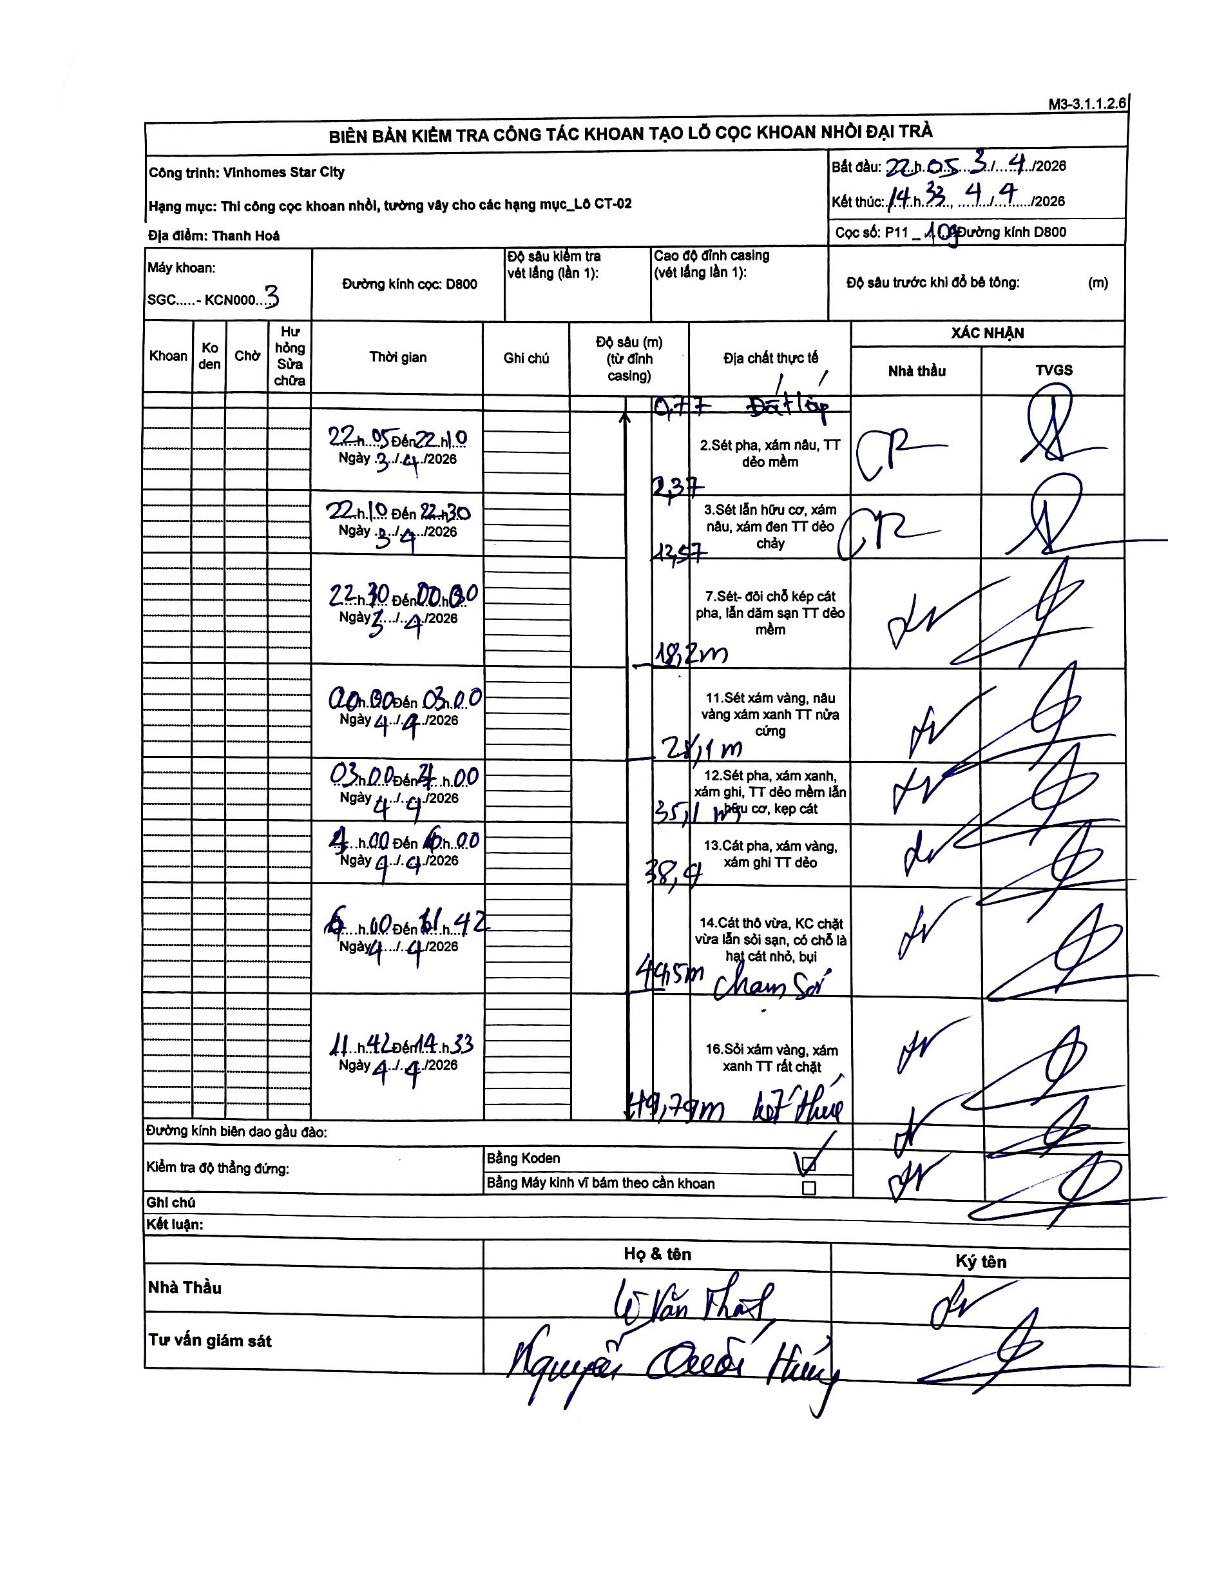 M3-3.1.1.2.6
BIÊN BẢN KIỂM TRA CÔNG TÁC KHOAN TẠO LỖ CỌC KHOAN NHỒI ĐẠI TRÀ
Công trình: Vinhomes Star City
Bắt đầu: 22.h.05 3/4/2026
Hạng mục: Thi công cọc khoan nhồi, tường vây cho các hạng mục_Lô CT-02
Kết thúc: 14.h.33, 4/4/2026
Địa điểm: Thanh Hoá
Cọc số: P11_109 Đường kính D800
Máy khoan:
SGC.....- KCN000...3
Đường kính cọc: D800
Độ sâu kiểm tra vét lắng (lần 1):
Cao độ đỉnh casing (vét lắng lần 1):
Độ sâu trước khi đổ bê tông: (m)
Khoan
Ko den
Chờ
Hư hỏng Sửa chữa
Thời gian
Ghi chú
Độ sâu (m) (từ đỉnh casing)
Địa chất thực tế
XÁC NHẬN
Nhà thầu
TVGS
0,77 Đất lấp
22.h.05 Đến 22.h10
Ngày 3/4/2026
2.Sét pha, xám nâu, TT
dẻo mềm
2,37
22.h.10 Đến 22.h30
Ngày 3/4/2026
3.Sét lẫn hữu cơ, xám
nâu, xám đen TT dẻo
chảy
12,57
22.h.30 Đến 00.h00
Ngày 3/4/2026
7.Sét- đôi chỗ kép cát
pha, lẫn dăm sạn TT dẻo
mềm
18,2m
00h.00 Đến 03.h.00
Ngày 4/4/2026
11.Sét xám vàng, nâu
vàng xám xanh TT nửa
cứng
28,1m
03.h.00 Đến 4.h.00
Ngày 4/4/2026
12.Sét pha, xám xanh,
xám ghi, TT dẻo mềm lẫn
hữu cơ, kẹp cát
35,1 m
4.h.00 Đến 6.h.00
Ngày 4/4/2026
13.Cát pha, xám vàng,
xám ghi TT dẻo
38,4
6.h.00 Đến 11.h.42
Ngày 4/4/2026
14.Cát thô vừa, KC chặt
vừa lẫn sỏi sạn, có chỗ là
hạt cát nhỏ, bụi
Chạm Sỏi
11.h.42 Đến 14.h33
Ngày 4/4/2026
16.Sỏi xám vàng, xám
xanh TT rất chặt
49,79m kết thúc
Đường kính biên dao gầu đào:
Kiểm tra độ thẳng đứng:
Bằng Koden
Bằng Máy kinh vĩ bám theo cần khoan
Ghi chú
Kết luận:
Họ & tên
Ký tên
Nhà Thầu
Lê Văn
Tư vấn giám sát
Nguyễn Quốc Hưng